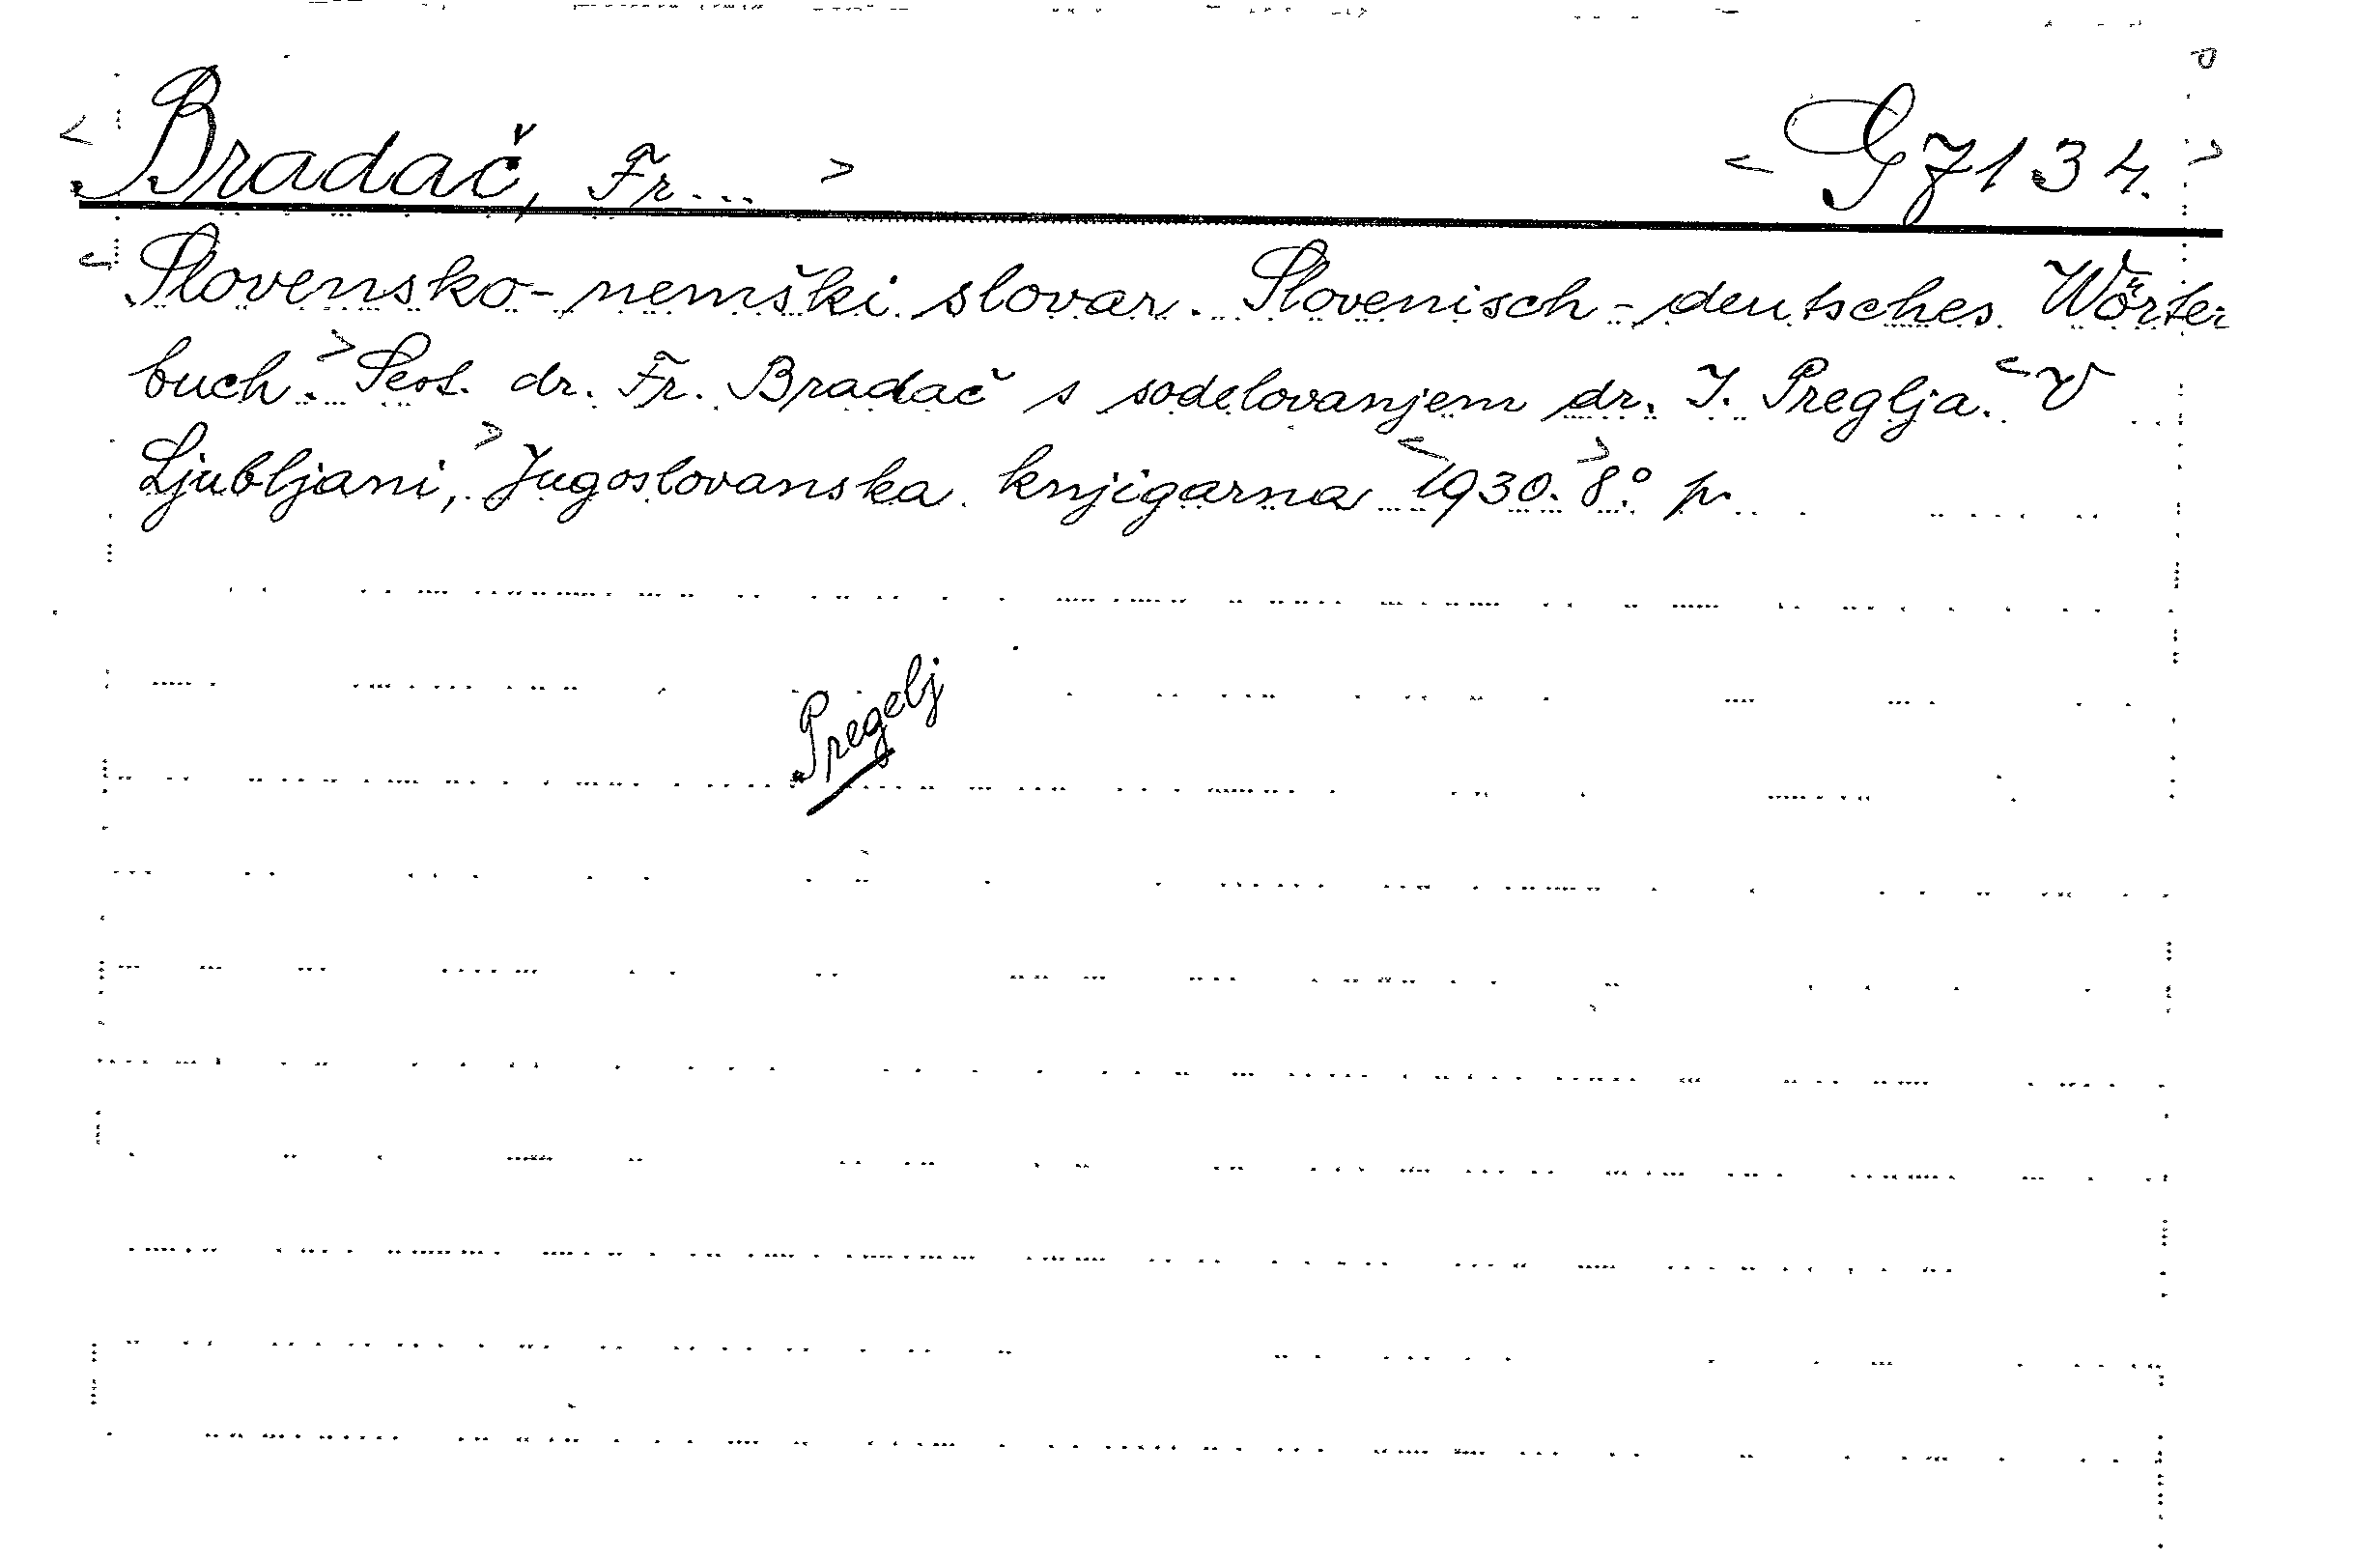 <Bradač, Fr...> <G 7134.>
<Slovensko-nemški slovar. Slovenisch-deutsches Wörter
buch.> Sest. dr. Fr. Bradač s sodelovanjem dr. I. Preglja. <V
Ljubljani,> Jugoslovanska knjigarna <1930.> 8° p.
Pregelj